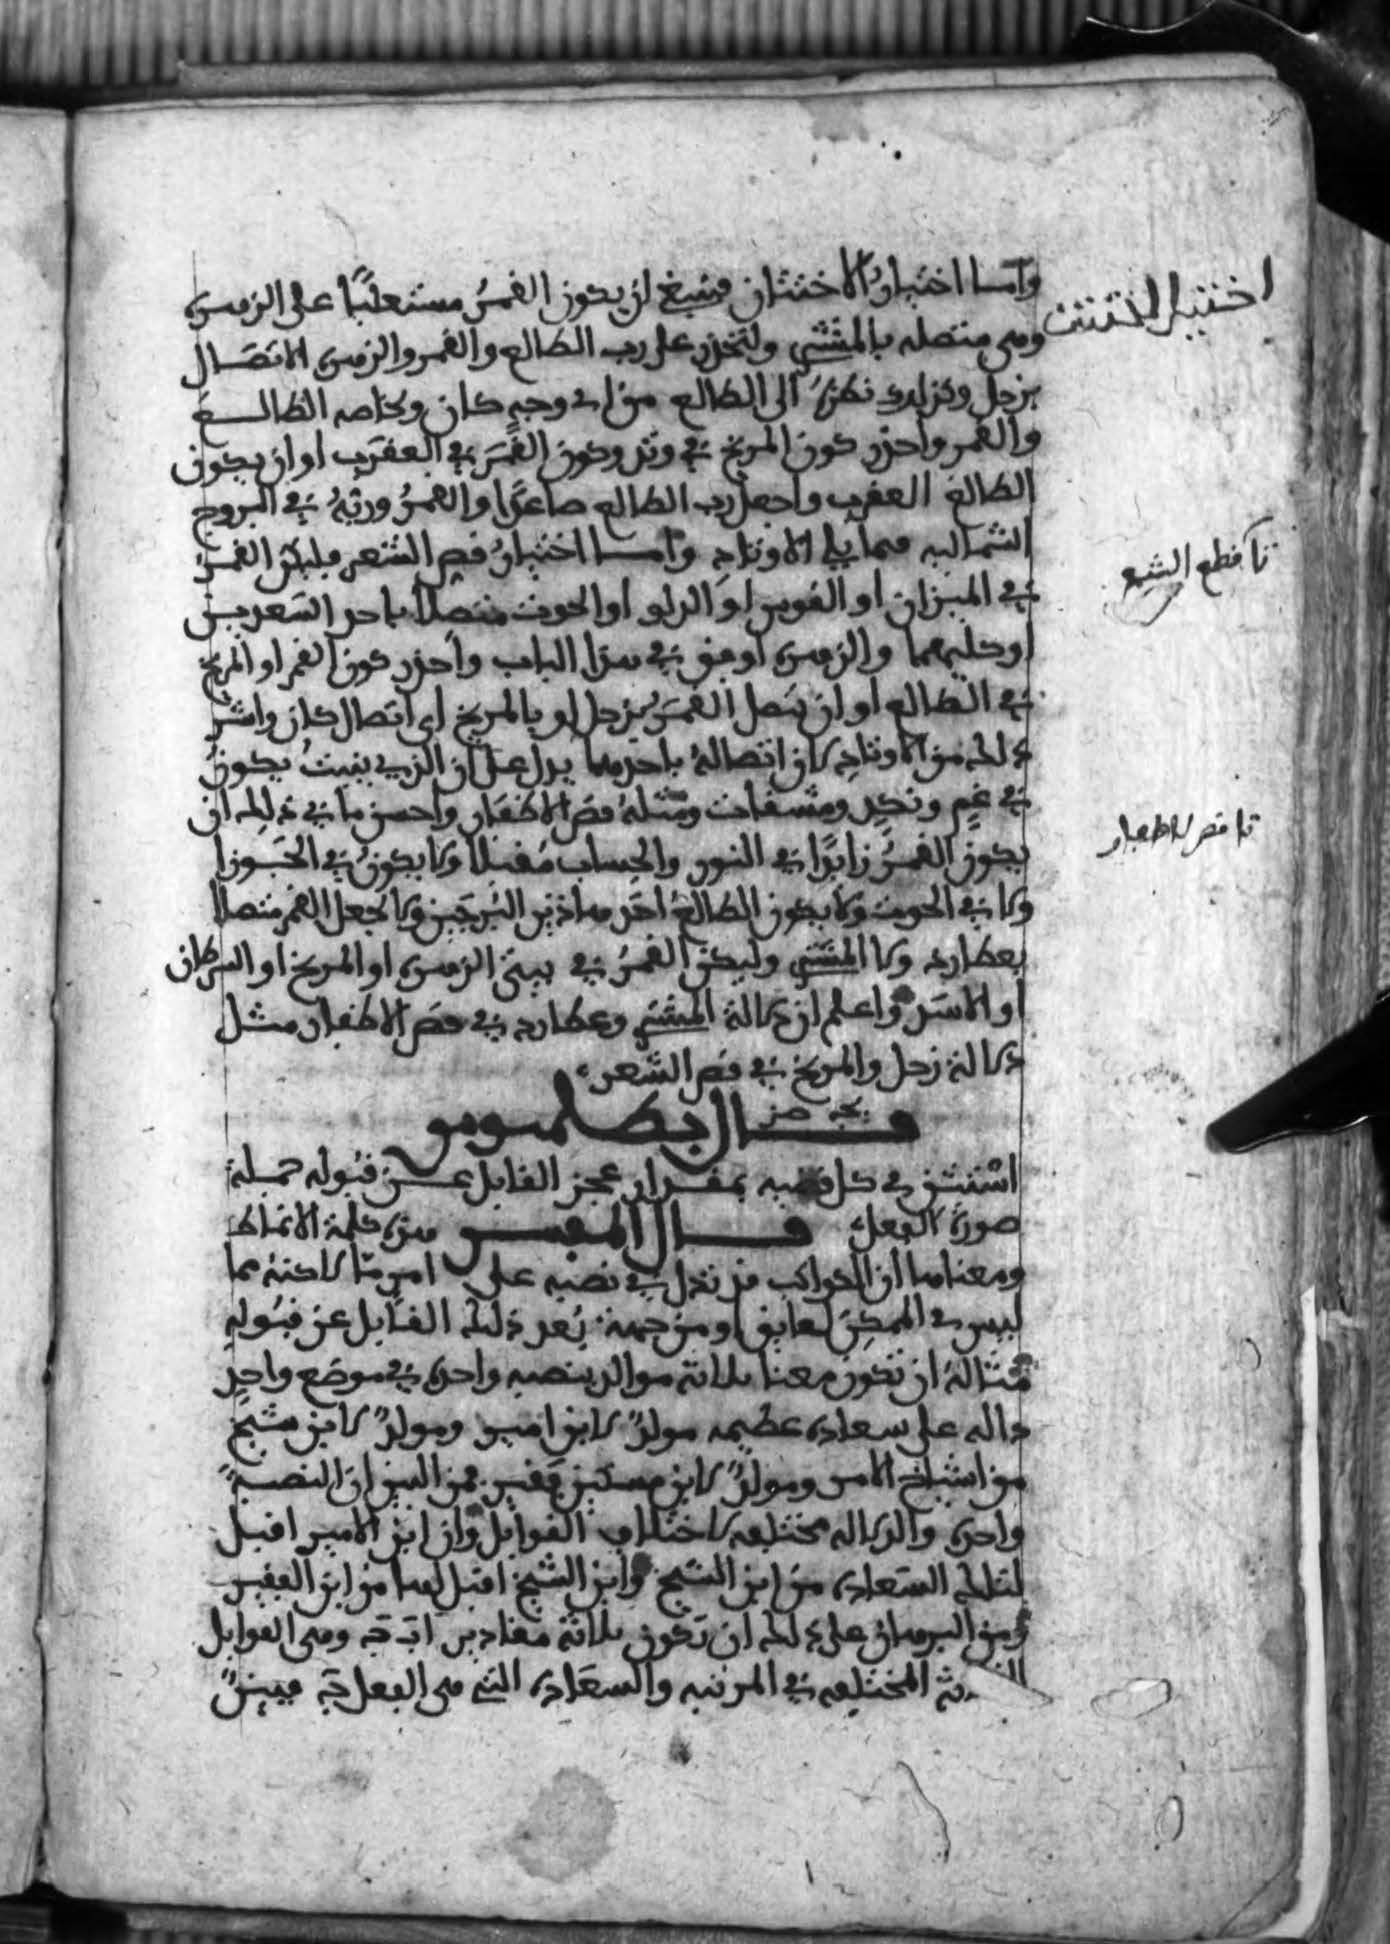 وأما اختيار الاختتان فينبغي أن يكون القمر مستعليا على الزهرة
وهي متصلة بالمشتري ولتحذر على رب الطالع والقمر والزهرة الاتصال
بزحل وكذلك نظره الى الطالع من اي وجه كان وبخاصة الطالع
والقمر واحذر كون المريخ في وتد وكون القمر في العقرب او ان يكون
الطالع العقرب واجعل رب الطالع صاعدا والقمر وربه في البروج
الشمالية مما يلي الاوتاد وأما اختيار قص الشعر فليكن القمر
في الميزان او القوس او الدلو او الحوت متصلا باحد السعدين
او كليهما والزهرة اوفق في هذا الباب واحذر كون القمر او المريخ
في الطالع او ان يتصل القمر بزحل او بالمريخ اي اتصال كان واشد
ذلك من الاوتاد لان اتصاله باحدهما يدل على ان الذي ينبت يكون
في غم ونكد ومشقات ومثله قص الاظفار واحسن ما في ذلك ان
يكون القمر زايدا في النور والحساب مقبلا ولا يكون في الجوزا
ولا في الحوت ولا يكون الطالع احد هاذين البرجين ولا تجعل القمر متصلا
بعطارد ولا المشتري وليكن القمر في بيتي الزهرة او المريخ او السرطان
او الاسد واعلم ان دلالة المشتري وعطارد في قص الاظفار مثل
دلالة زحل والمريخ في قص الشعر
قال بطلميوس
استثن في كل قضية بمقدار عجز القابل عن قبوله جملة
صورة الفعل قال المفسر هذه كلمة الانماط
ومعناها ان الكواكب قد تدل في نصبة على امر ما لاكنه مما
ليس في الممكن لعايق او من جهة بعد ذلك القابل عن قبوله
مثاله ان تكون معنا ثلاثة موالد بنصبة واحدة في موضع واحد
دالة على سعادة عظيمة مولد لابن امير ومولد لابن شيخ
من اشياخ الامر ومولد لابن مسكين فقير فمن البين ان النصبة
واحدة والدلالة مختلفة لاختلاف القوابل وان ابن الامير اقبل
لتلك السعادة من ابن الشيخ وابن الشيخ اقبل لها من ابن الفقير
ومن البرهان على ذلك ان تكون ثلاثة مقادير اَ بَ جَ وهي القوابل
المختلفة في المرتبة والسعادة التي هي الفعل
اختيار الختنت
تا قطع الشعر
تا قص الاظفار